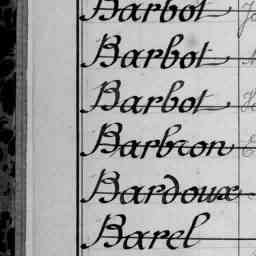 Barbot
Barbot
Barbot
Barbron
Bardoux
Barel